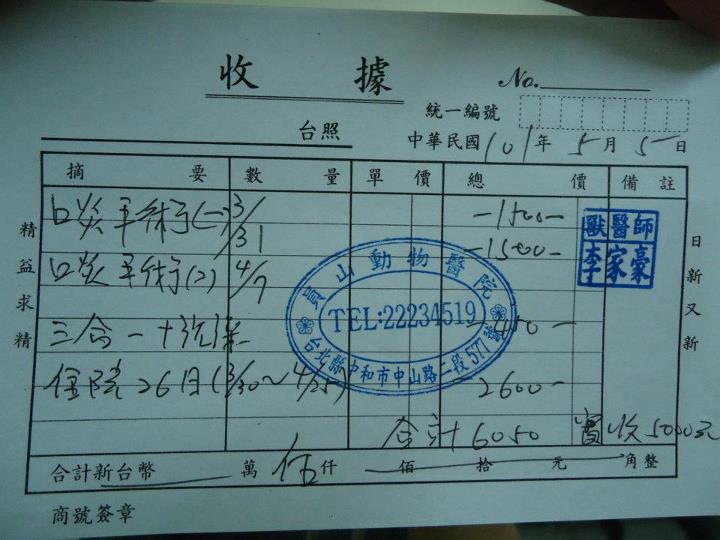 收 據
No.
統一編號
台照
中華民國 101 年 5 月 5 日
摘 要 數 量 單 價 總 價 備 註
口炎手術(一) 3/31 -1500-
口炎手術(2) 4/7 -1500-
三合一+洗澡 -450-
住院26日(3/30~4/25) -2600-
合計6050 實收5000元
合計新台幣 萬 伍 仟 佰 拾 元 角整
商號簽章
精益求精
日新又新
獸醫師
李家豪
員山動物醫院
TEL:22234519
台北縣中和市中山路二段577號